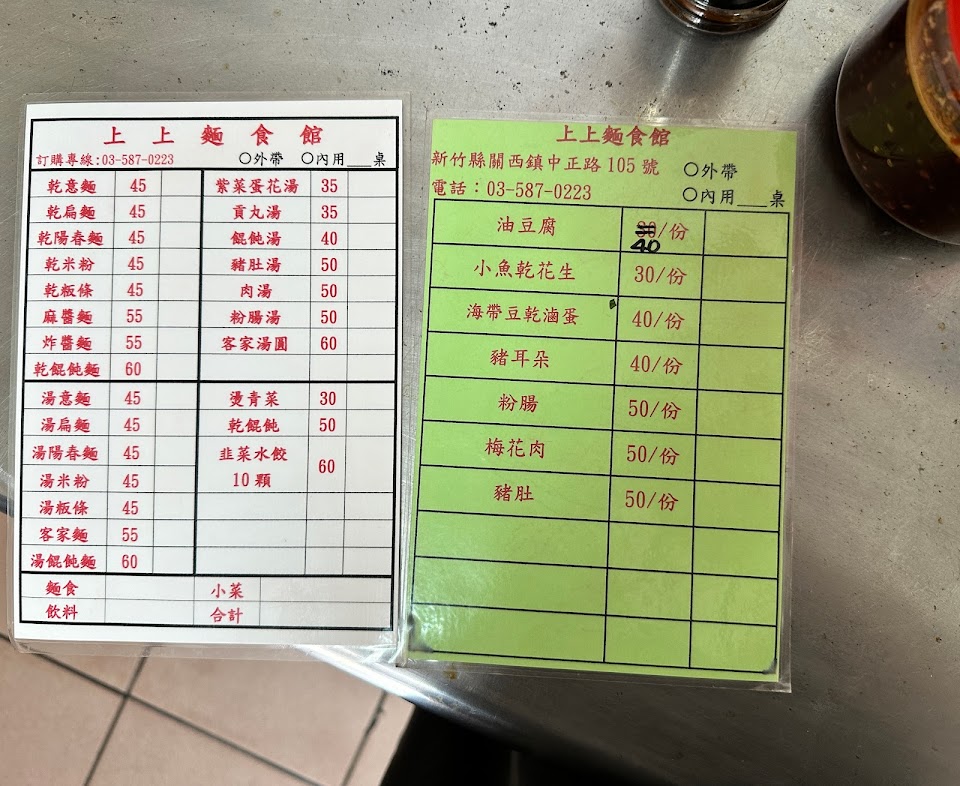 上上麵食館
訂購專線:03-587-0223 ○外帶 ○內用___桌
乾意麵 45
乾扁麵 45
乾陽春麵 45
乾米粉 45
乾粄條 45
麻醬麵 55
炸醬麵 55
乾餛飩麵 60
湯意麵 45
湯扁麵 45
湯陽春麵 45
湯米粉 45
湯粄條 45
客家麵 55
湯餛飩麵 60
紫菜蛋花湯 35
貢丸湯 35
餛飩湯 40
豬肚湯 50
肉湯 50
粉腸湯 50
客家湯圓 60
燙青菜 30
乾餛飩 50
韭菜水餃 60
10顆
麵食 小菜
飲料 合計
上上麵食館
新竹縣關西鎮中正路105號 ○外帶
電話：03-587-0223 ○內用___桌
油豆腐 /份
40
小魚乾花生 30/份
海帶豆乾滷蛋 40/份
豬耳朵 40/份
粉腸 50/份
梅花肉 50/份
豬肚 50/份